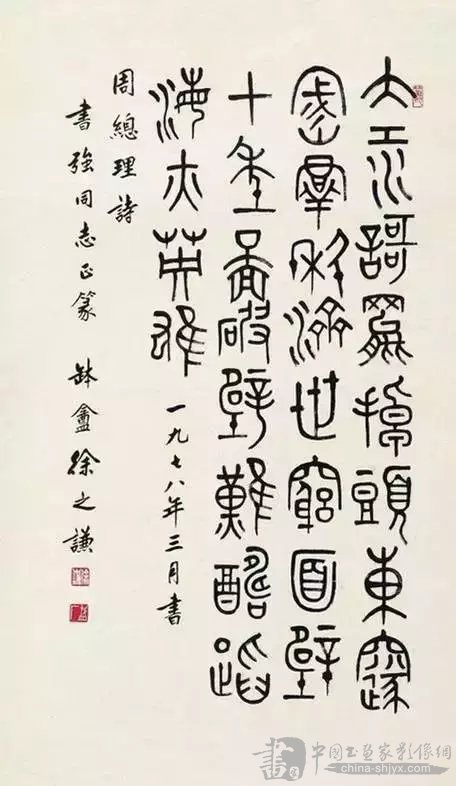 大江謌罷掉頭東邃
密羣科濟世窮面壁
十年啚破壁難醻蹈
海亦英雄 一九七八年三月書
周總理詩
書強同志正篆 缽盦徐之謙
中国书画家影像網
china-shjyx.com